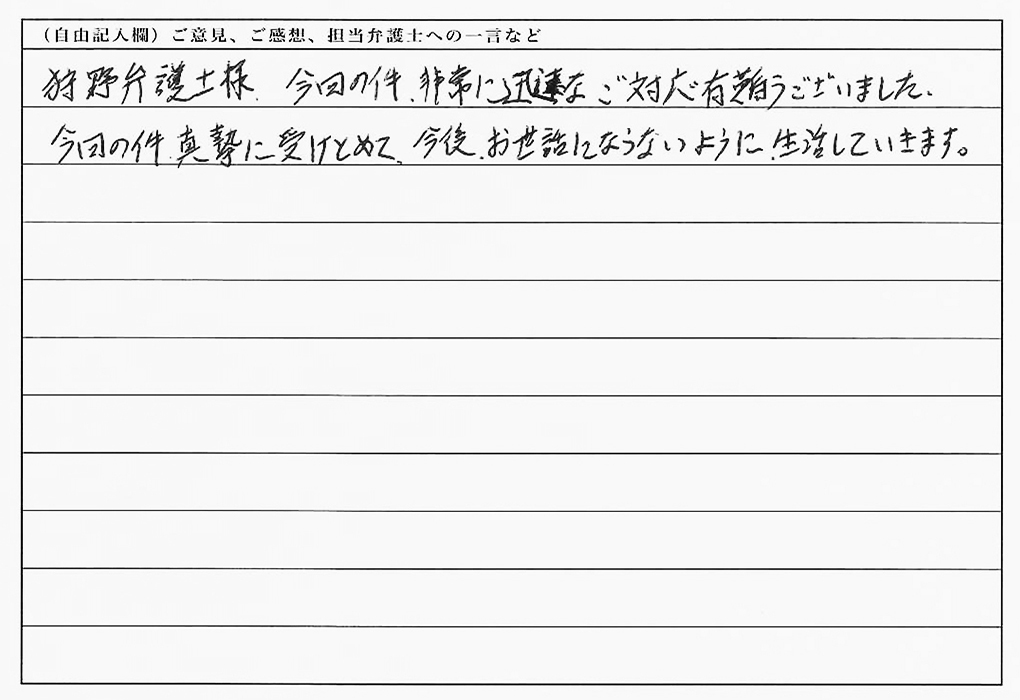 (自由記入欄) ご意見、ご感想、担当弁護士への一言など
狩野弁護士様、今回の件、非常に迅速なご対応有難うございました、
今回の件、真摯に受けとめて、今後、お世話にならないように、生活していきます。